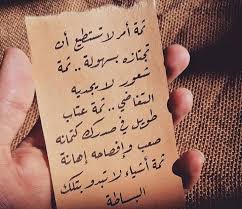 ثمة أمر لا تستطيع أن
تجتازه بسهولة .. ثمة
شعور لا يجديه
التغاضي .. ثمة عتاب
طويل في صدرك كتمانه
صعب وإفصاحه إهانة
ثمة أشياء لا تبدو بتلك
البساطة